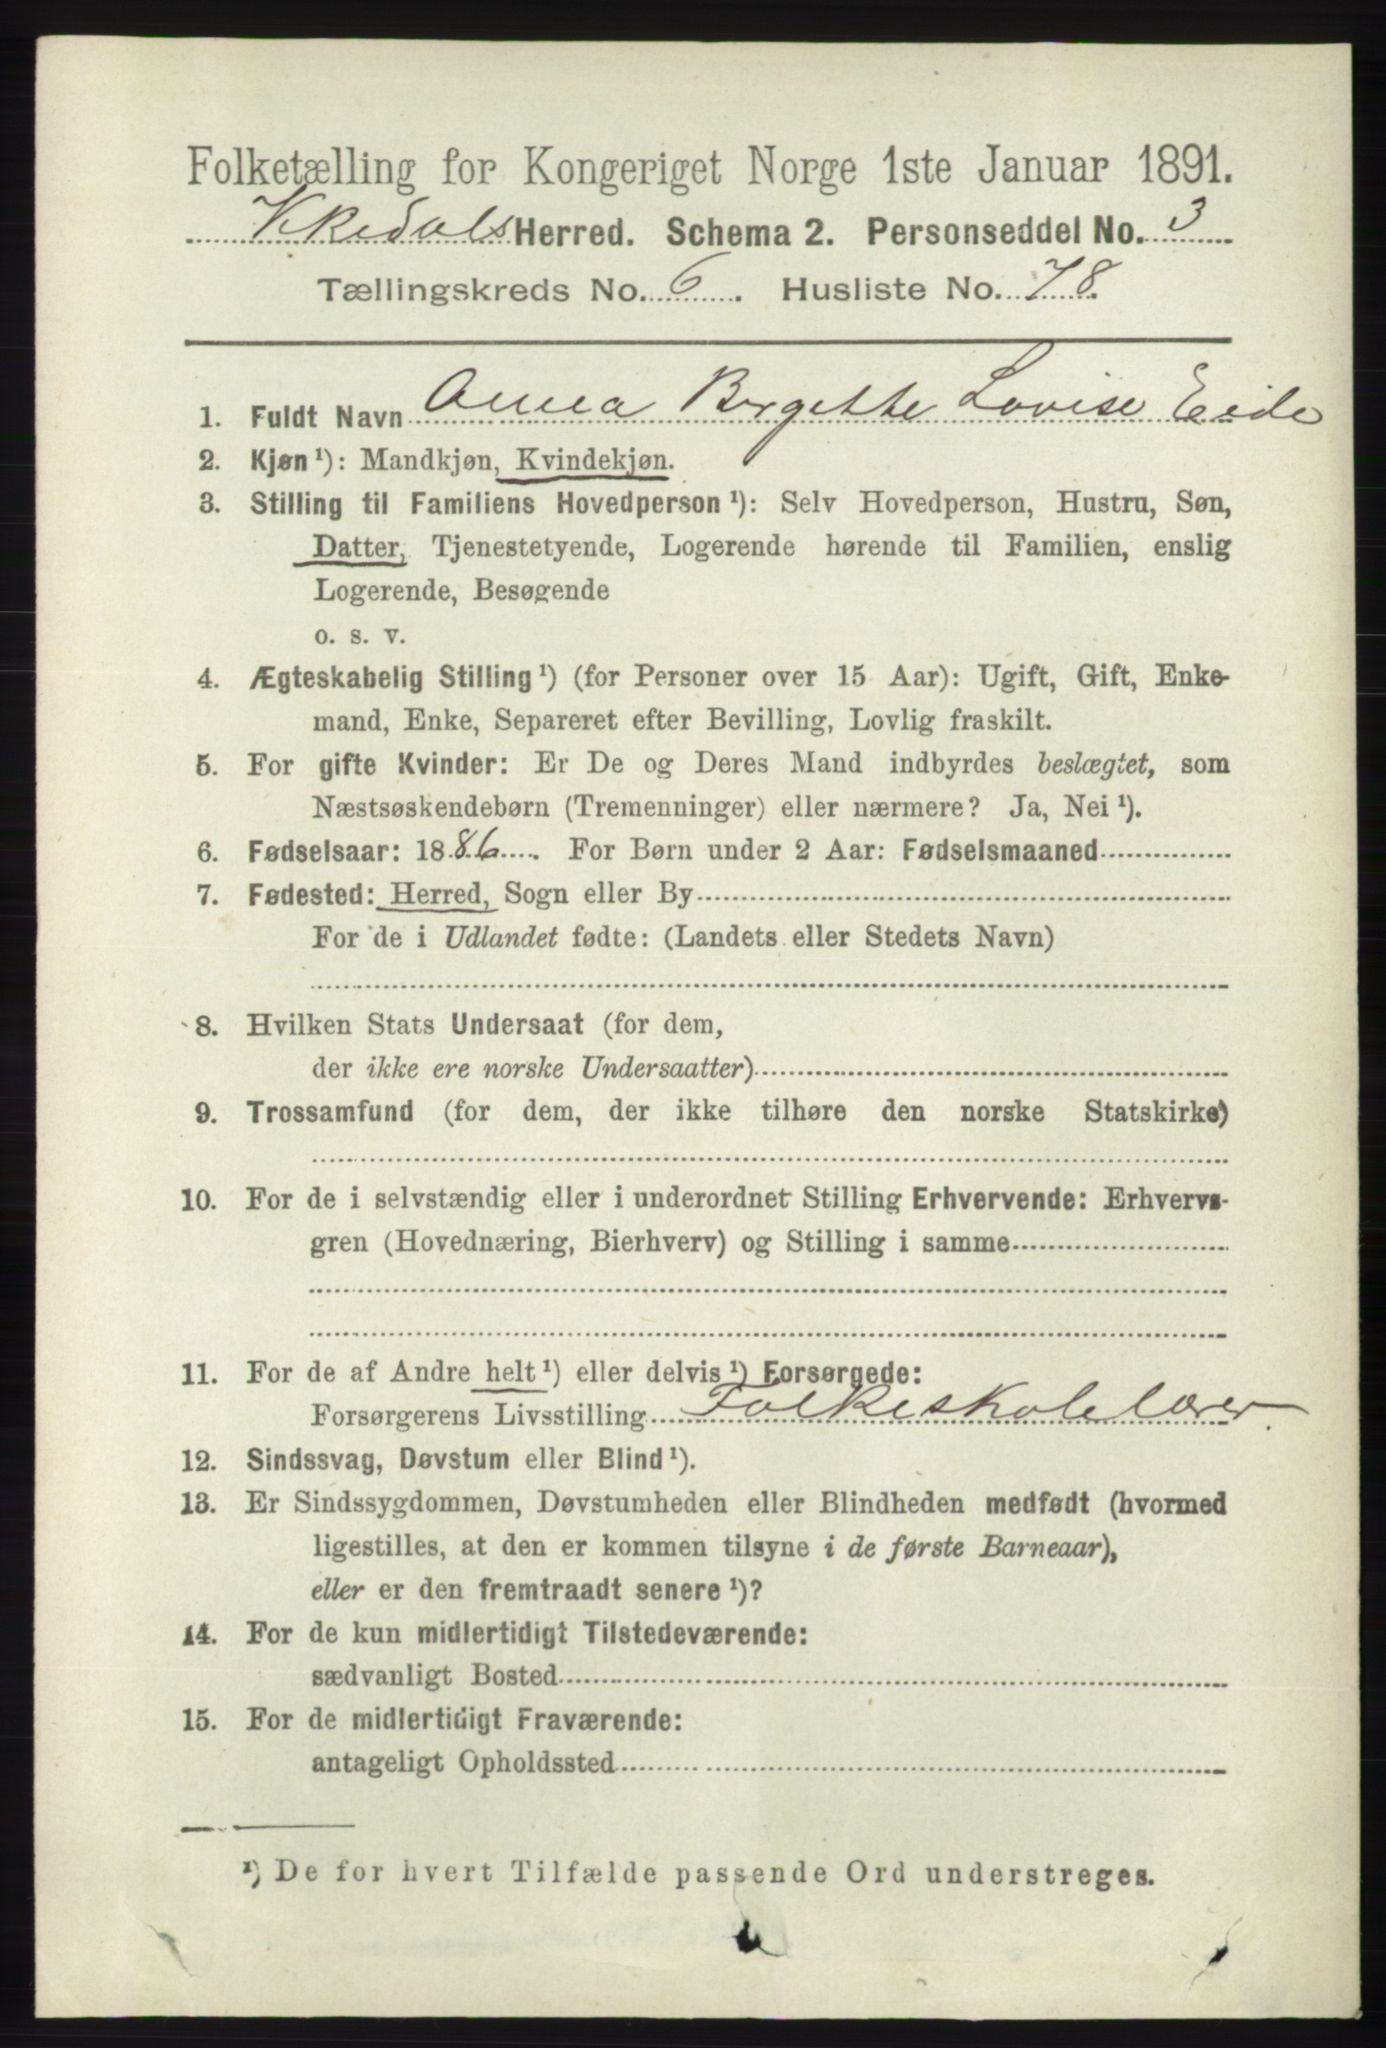 Folketælling for Kongeriget Norge 1ste Januar 1891.
Herred. Schema 2. Personseddel No. 3
Tællingskreds No. 6. Husliste No. 78.
1. Fuldt Navn Anna Birgitte Lovise Eide
2. Kjøn¹): Mandkjøn, Kvindekjøn.
3. Stilling til Familiens Hovedperson¹): Selv Hovedperson, Hustru, Søn,
Datter, Tjenestetyende, Logerende hørende til Familien, enslig
Logerende, Besøgende
o. s. v.
4. Ægteskabelig Stilling¹) (for Personer over 15 Aar): Ugift, Gift, Enke-
mand, Enke, Separeret efter Bevilling, Lovlig fraskilt.
5. For gifte Kvinder: Er De og Deres Mand indbyrdes beslægtet, som
Næstsøskendebørn (Tremenninger) eller nærmere? Ja, Nei¹).
6. Fødselsaar: 1886. For Børn under 2 Aar: Fødselsmaaned
7. Fødested: Herred, Sogn eller By
For de i Udlandet fødte: (Landets eller Stedets Navn)
8. Hvilken Stats Undersaat (for dem,
der ikke ere norske Undersaatter)
9. Trossamfund (for dem, der ikke tilhøre den norske Statskirke)
10. For de i selvstændig eller i underordnet Stilling Erhvervende: Erhvervs-
gren (Hovednæring, Bierhverv) og Stilling i samme
11. For de af Andre helt¹) eller delvis¹) Forsørgede:
Forsørgerens Livsstilling Folkeskolelærer.
12. Sindssvag, Døvstum eller Blind¹).
13. Er Sindssygdommen, Døvstumheden eller Blindheden medfødt (hvormed
ligestilles, at den er kommen tilsyne i de første Barneaar),
eller er den fremtraadt senere¹)?
14. For de kun midlertidigt Tilstedeværende:
sædvanligt Bosted
15. For de midlertidigt Fraværende:
antageligt Opholdssted
¹) De for hvert Tilfælde passende Ord understreges.